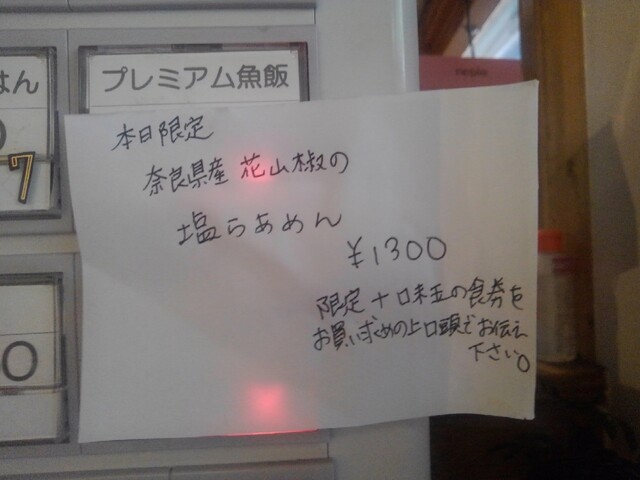 はん
プレミアム魚飯
7
本日限定
奈良県産 花山椒の
塩らあめん
¥1300
限定+口味玉の食券を
お買い求めの上口頭でお伝え
下さい。
0